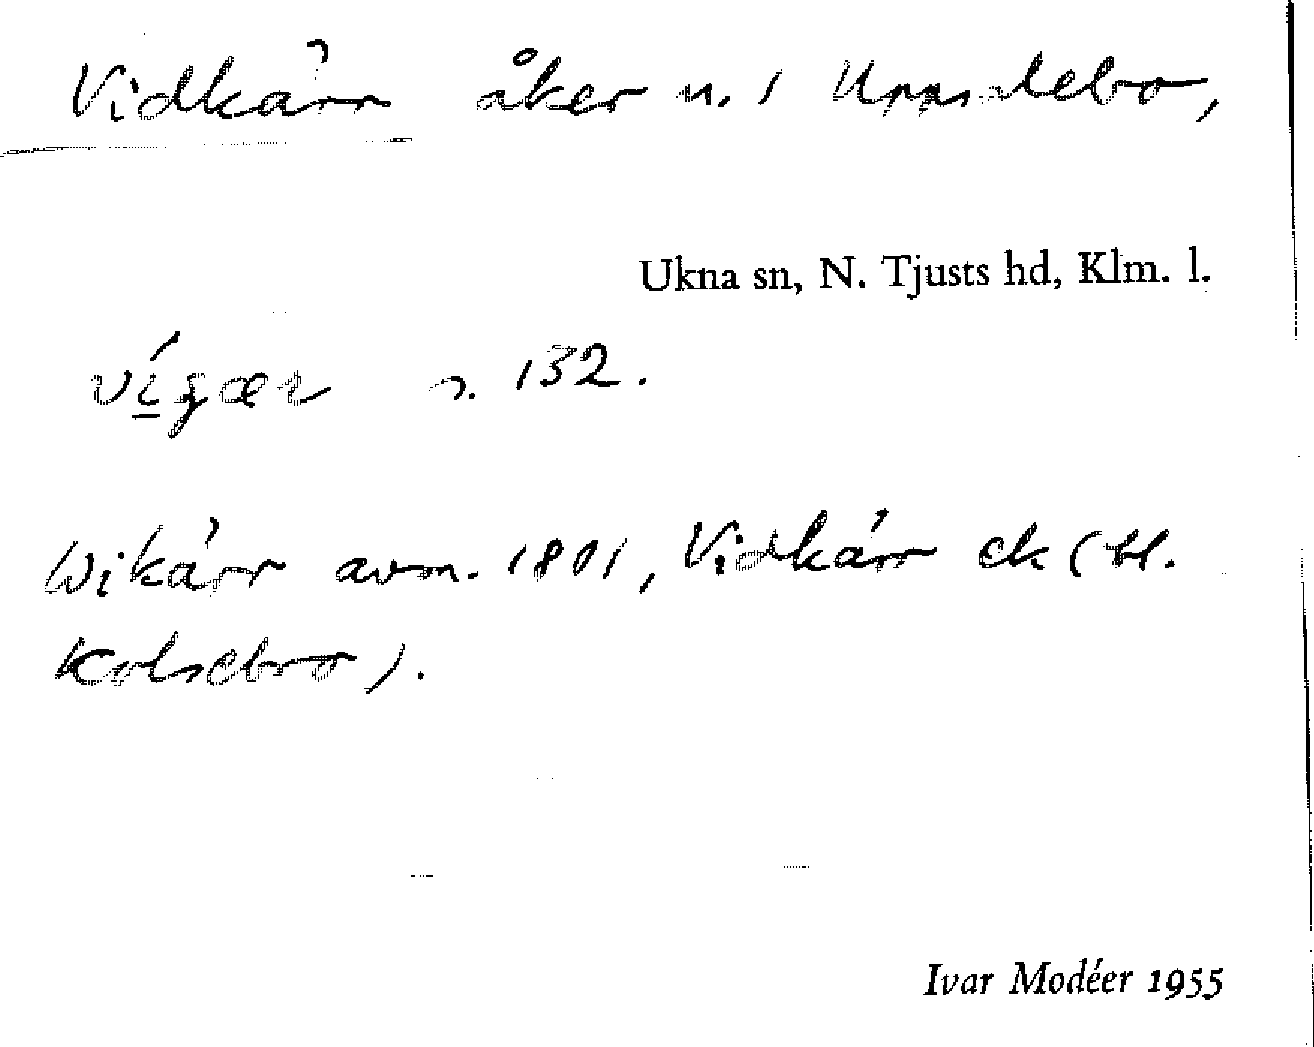 Vidkärr åker n. i Uppsalebo,
Ukna sn, N. Tjusts hd, Klm. l.
vígær s. 132.
Wikärr avm. 1801, Vidkärr ek (bl.
Kolsebro).
Ivar Modéer 1955